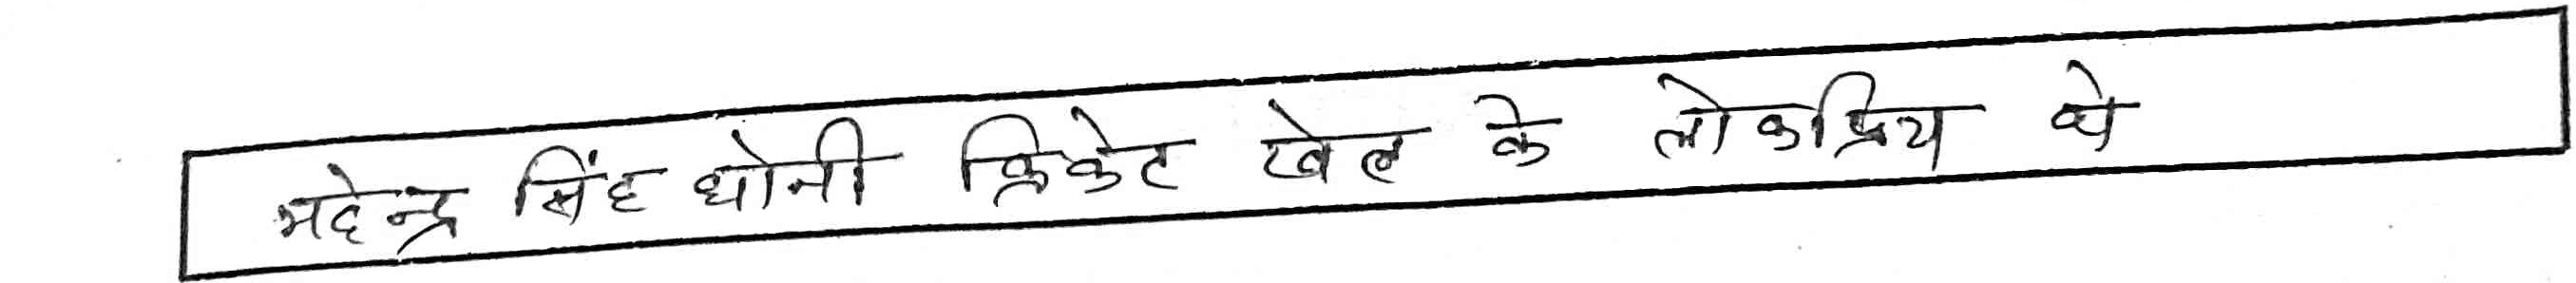 महेन्द्र सिंह धोनी क्रिकेट खेल के लोकप्रिय थे